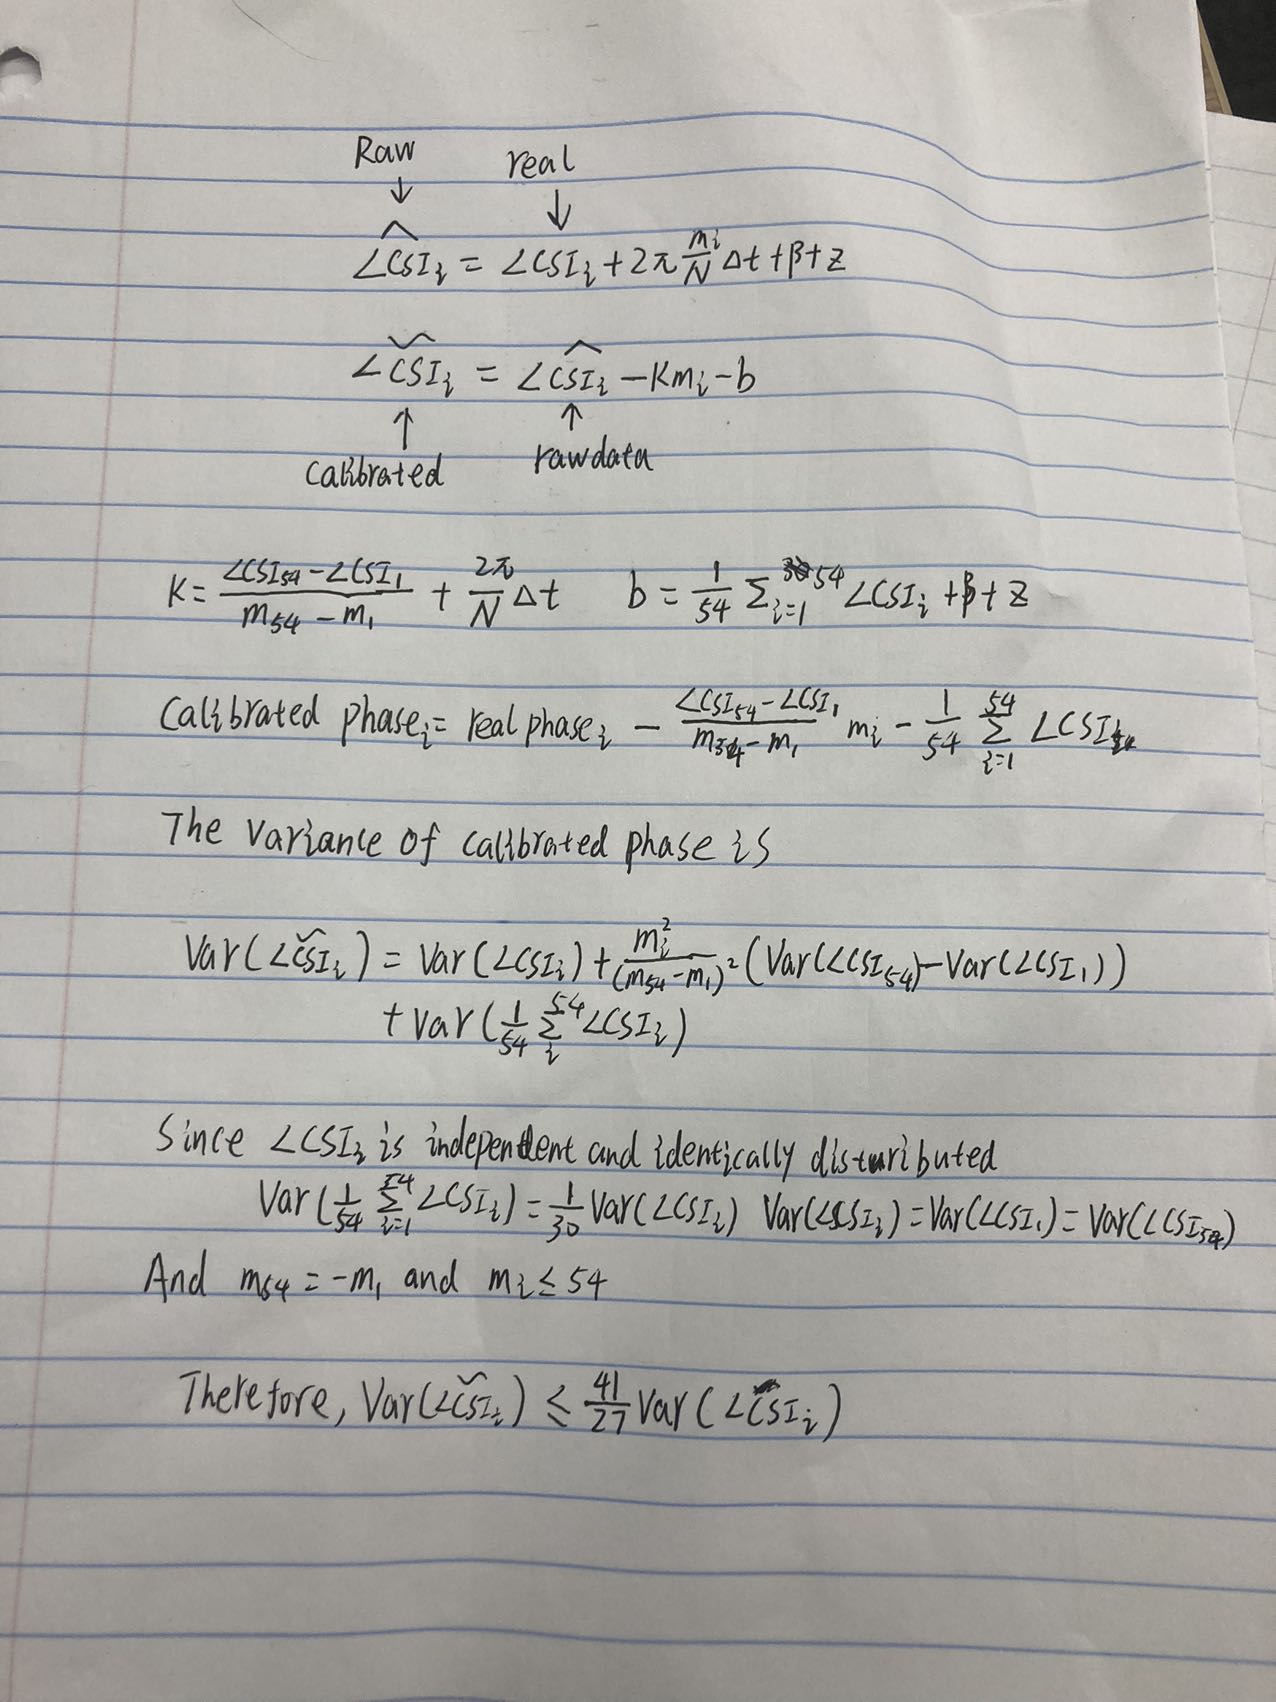 Raw real
↓ ↓
∠ĈSIᵢ = ∠CSIᵢ + 2π mᵢ/N Δt + β + z
∠C͝SIᵢ = ∠ĈSIᵢ − Kmᵢ − b
↑ ↑
Calibrated rawdata
K = (∠CSI₅₄ − ∠CSI₁)/(m₅₄ − m₁) + 2π/N Δt b = 1/54 Σᵢ₌₁⁵⁴ ∠CSIᵢ + β + z
Calibrated phaseᵢ = real phaseᵢ − (∠CSI₅₄ − ∠CSI₁)/(m₅₄ − m₁) mᵢ − 1/54 Σᵢ₌₁⁵⁴ ∠CSIᵢ
The variance of calibrated phase is
Var(∠C͝SIᵢ) = Var(∠CSIᵢ) + mᵢ²/(m₅₄ − m₁)² (Var(∠CSI₅₄) − Var(∠CSI₁))
+ Var(1/54 Σᵢ⁵⁴ ∠CSIᵢ)
Since ∠CSIᵢ is independent and identically distuributed
Var(1/54 Σᵢ₌₁⁵⁴ ∠CSIᵢ) = 1/30 Var(∠CSIᵢ) Var(∠CSIᵢ) = Var(∠CSI₁) = Var(∠CSI₅₄)
And m₅₄ = −m₁ and mᵢ ≤ 54
Therefore, Var(∠C͝SIᵢ) ≤ 41/27 Var(∠CSIᵢ)